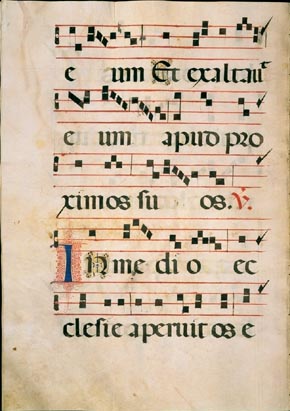 e um Et exaltauit
e um apud pro
ximos su os. V.
In me di o ec
clesie aperuit os e